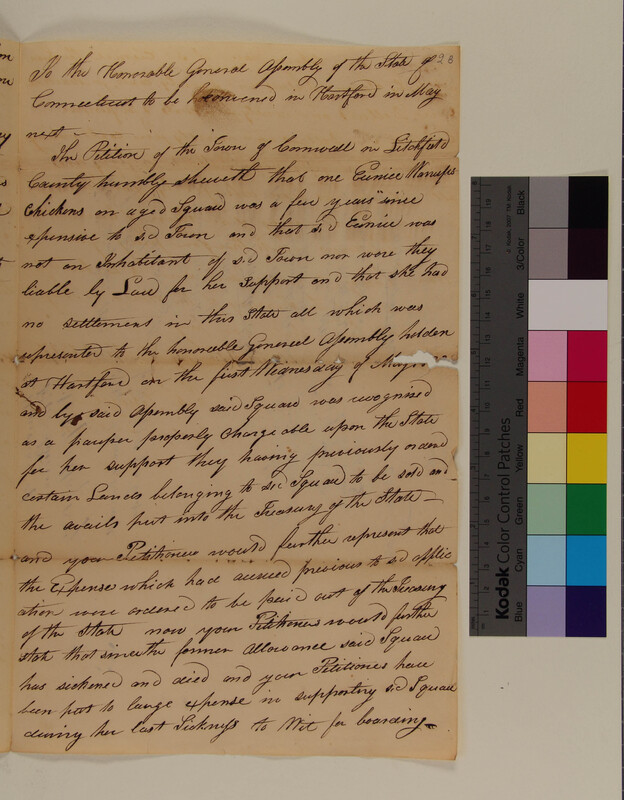 To the Honorable General Assembly of the State of 28
Connecticut to be convened in Hartford in May
next
The Petition of the Town of Cornwall in Litchfield
County humbly sheweth that one Eunice
Chickens an aged Squaw was a few years since
expensive to sd Town and that sd Eunice was
not an Inhabitant of sd Town nor were they
liable by Law for her support and that she had
no settlement in this State all which was
represented to the honorable General Assembly holden
at Hartford on the first Wednesday of May
and by said Assembly said Squaw was recognised
as a pauper properly chargeable upon the State
for her support they having previously ordered
certain Lands belonging to sd Squaw to be sold and
the avails put into the Treasury of the State—
and your Petitioners would further represent that
the Expense which had accrued previous to sd applic
ation were ordered to be paid out of the Treasury
of the State now your Petitioners would further
state that since the former allowance said Squaw
has sickened and died and your Petitioners have
been put to large expense in supporting sd Squaw
during her last Sickness to Wit for boarding
Kodak Color Control Patches
Blue
Cyan
Green
Yellow
Red
Magenta
White
3/Color
Black